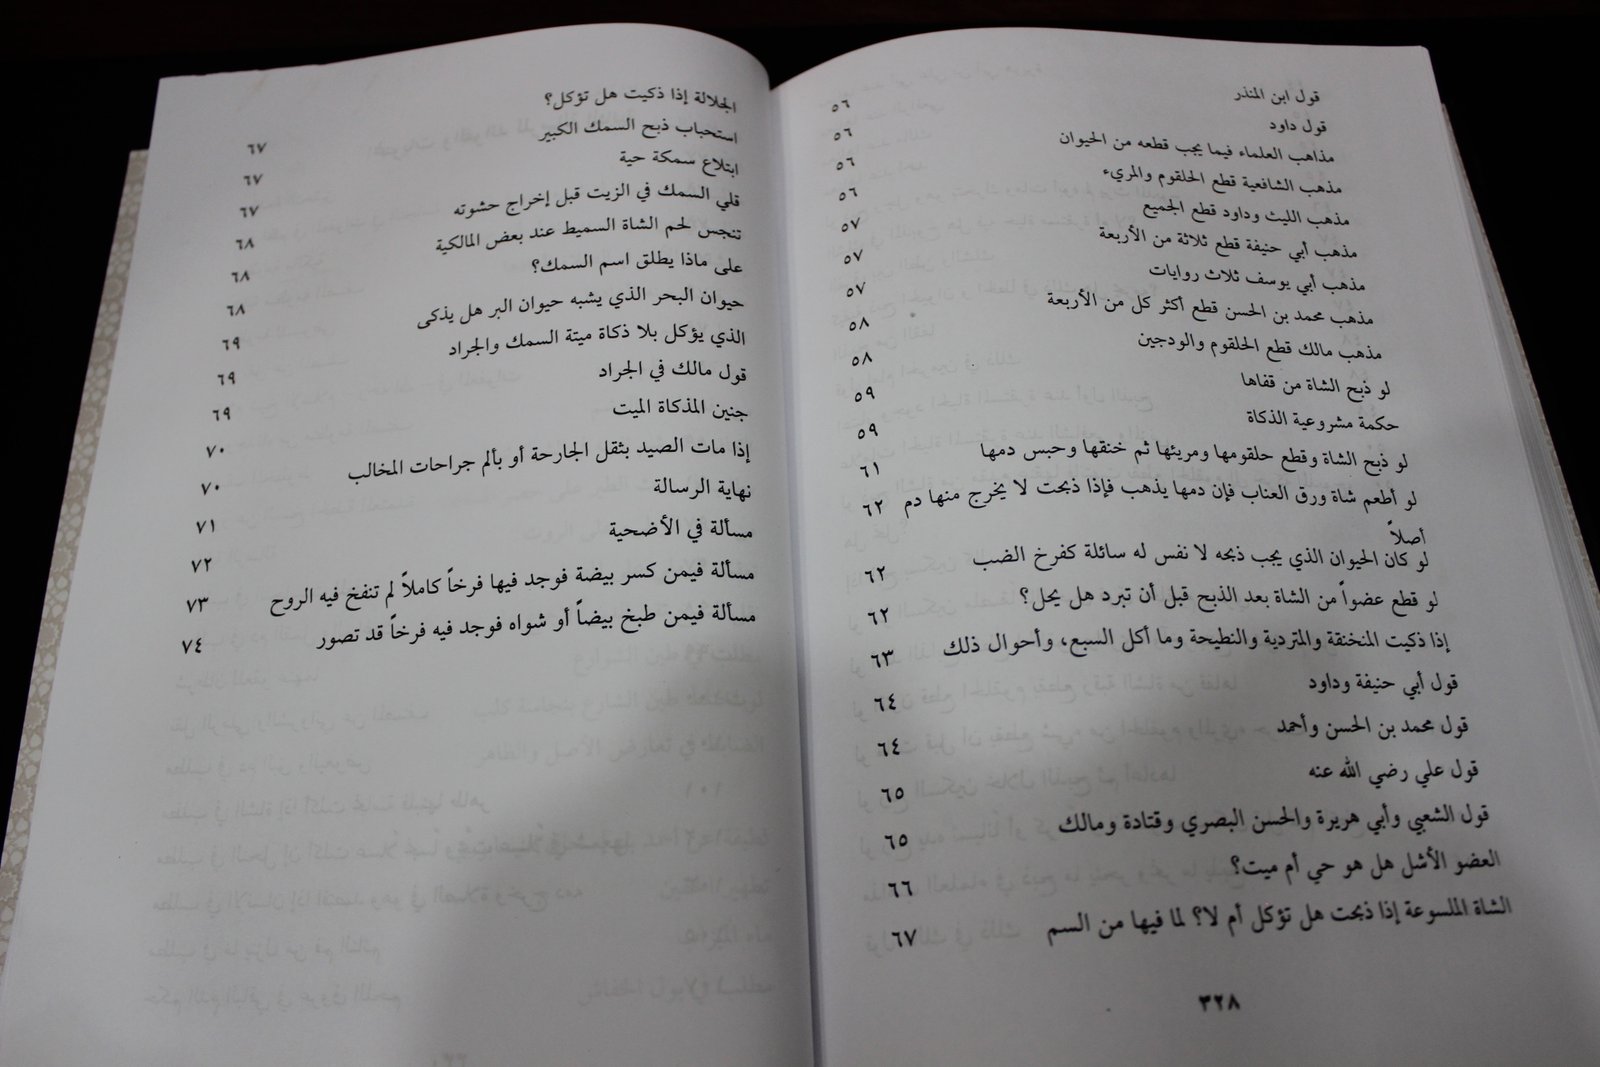 قول ابن المنذر ٥٦
قول داود ٥٦
مذاهب العلماء فيما يجب قطعه من الحيوان ٥٦
مذهب الشافعية قطع الحلقوم والمريء ٥٦
مذهب الليث وداود قطع الجميع ٥٧
مذهب أبي حنيفة قطع ثلاثة من الأربعة ٥٧
مذهب أبي يوسف ثلاث روايات ٥٧
مذهب محمد بن الحسن قطع أكثر كل من الأربعة ٥٨
مذهب مالك قطع الحلقوم والودجين ٥٨
لو ذبح الشاة من قفاها ٥٩
حكمة مشروعية الذكاة ٥٩
لو ذبح الشاة وقطع حلقومها ومريئها ثم خنقها وحبس دمها ٦١
لو أطعم شاة ورق العناب فإن دمها يذهب فإذا ذبحت لا يخرج منها دم ٦٢
أصلاً
لو كان الحيوان الذي يجب ذبحه لا نفس له سائلة كفرخ الضب ٦٢
لو قطع عضواً من الشاة بعد الذبح قبل أن تبرد هل يحل؟ ٦٢
إذا ذكيت المنخنقة والمتردية والنطيحة وما أكل السبع، وأحوال ذلك ٦٣
قول أبي حنيفة وداود ٦٤
قول محمد بن الحسن وأحمد ٦٤
قول علي رضي الله عنه ٦٥
قول الشعبي وأبي هريرة والحسن البصري وقتادة ومالك ٦٥
العضو الأشل هل هو حي أم ميت؟ ٦٦
الشاة الملسوعة إذا ذبحت هل تؤكل أم لا؟ لما فيها من السم ٦٧
٣٢٨
الجلالة إذا ذكيت هل تؤكل؟ ٦٧
استحباب ذبح السمك الكبير ٦٧
ابتلاع سمكة حية ٦٧
قلي السمك في الزيت قبل إخراج حشوته ٦٨
تنجس لحم الشاة السميط عند بعض المالكية ٦٨
على ماذا يطلق اسم السمك؟ ٦٨
حيوان البحر الذي يشبه حيوان البر هل يذكى ٦٩
الذي يؤكل بلا ذكاة ميتة السمك والجراد ٦٩
قول مالك في الجراد ٦٩
جنين المذكاة الميت ٧٠
إذا مات الصيد بثقل الجارحة أو بألم جراحات المخالب ٧٠
نهاية الرسالة ٧١
مسألة في الأضحية ٧٢
مسألة فيمن كسر بيضة فوجد فيها فرخاً كاملاً لم تنفخ فيه الروح ٧٣
مسألة فيمن طبخ بيضاً أو شواه فوجد فيه فرخاً قد تصور ٧٤